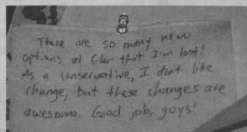 There are so many new
options at that I'm lost!
As a conservative, I don't like
change, but these changes are
awesome. Good job, guys!